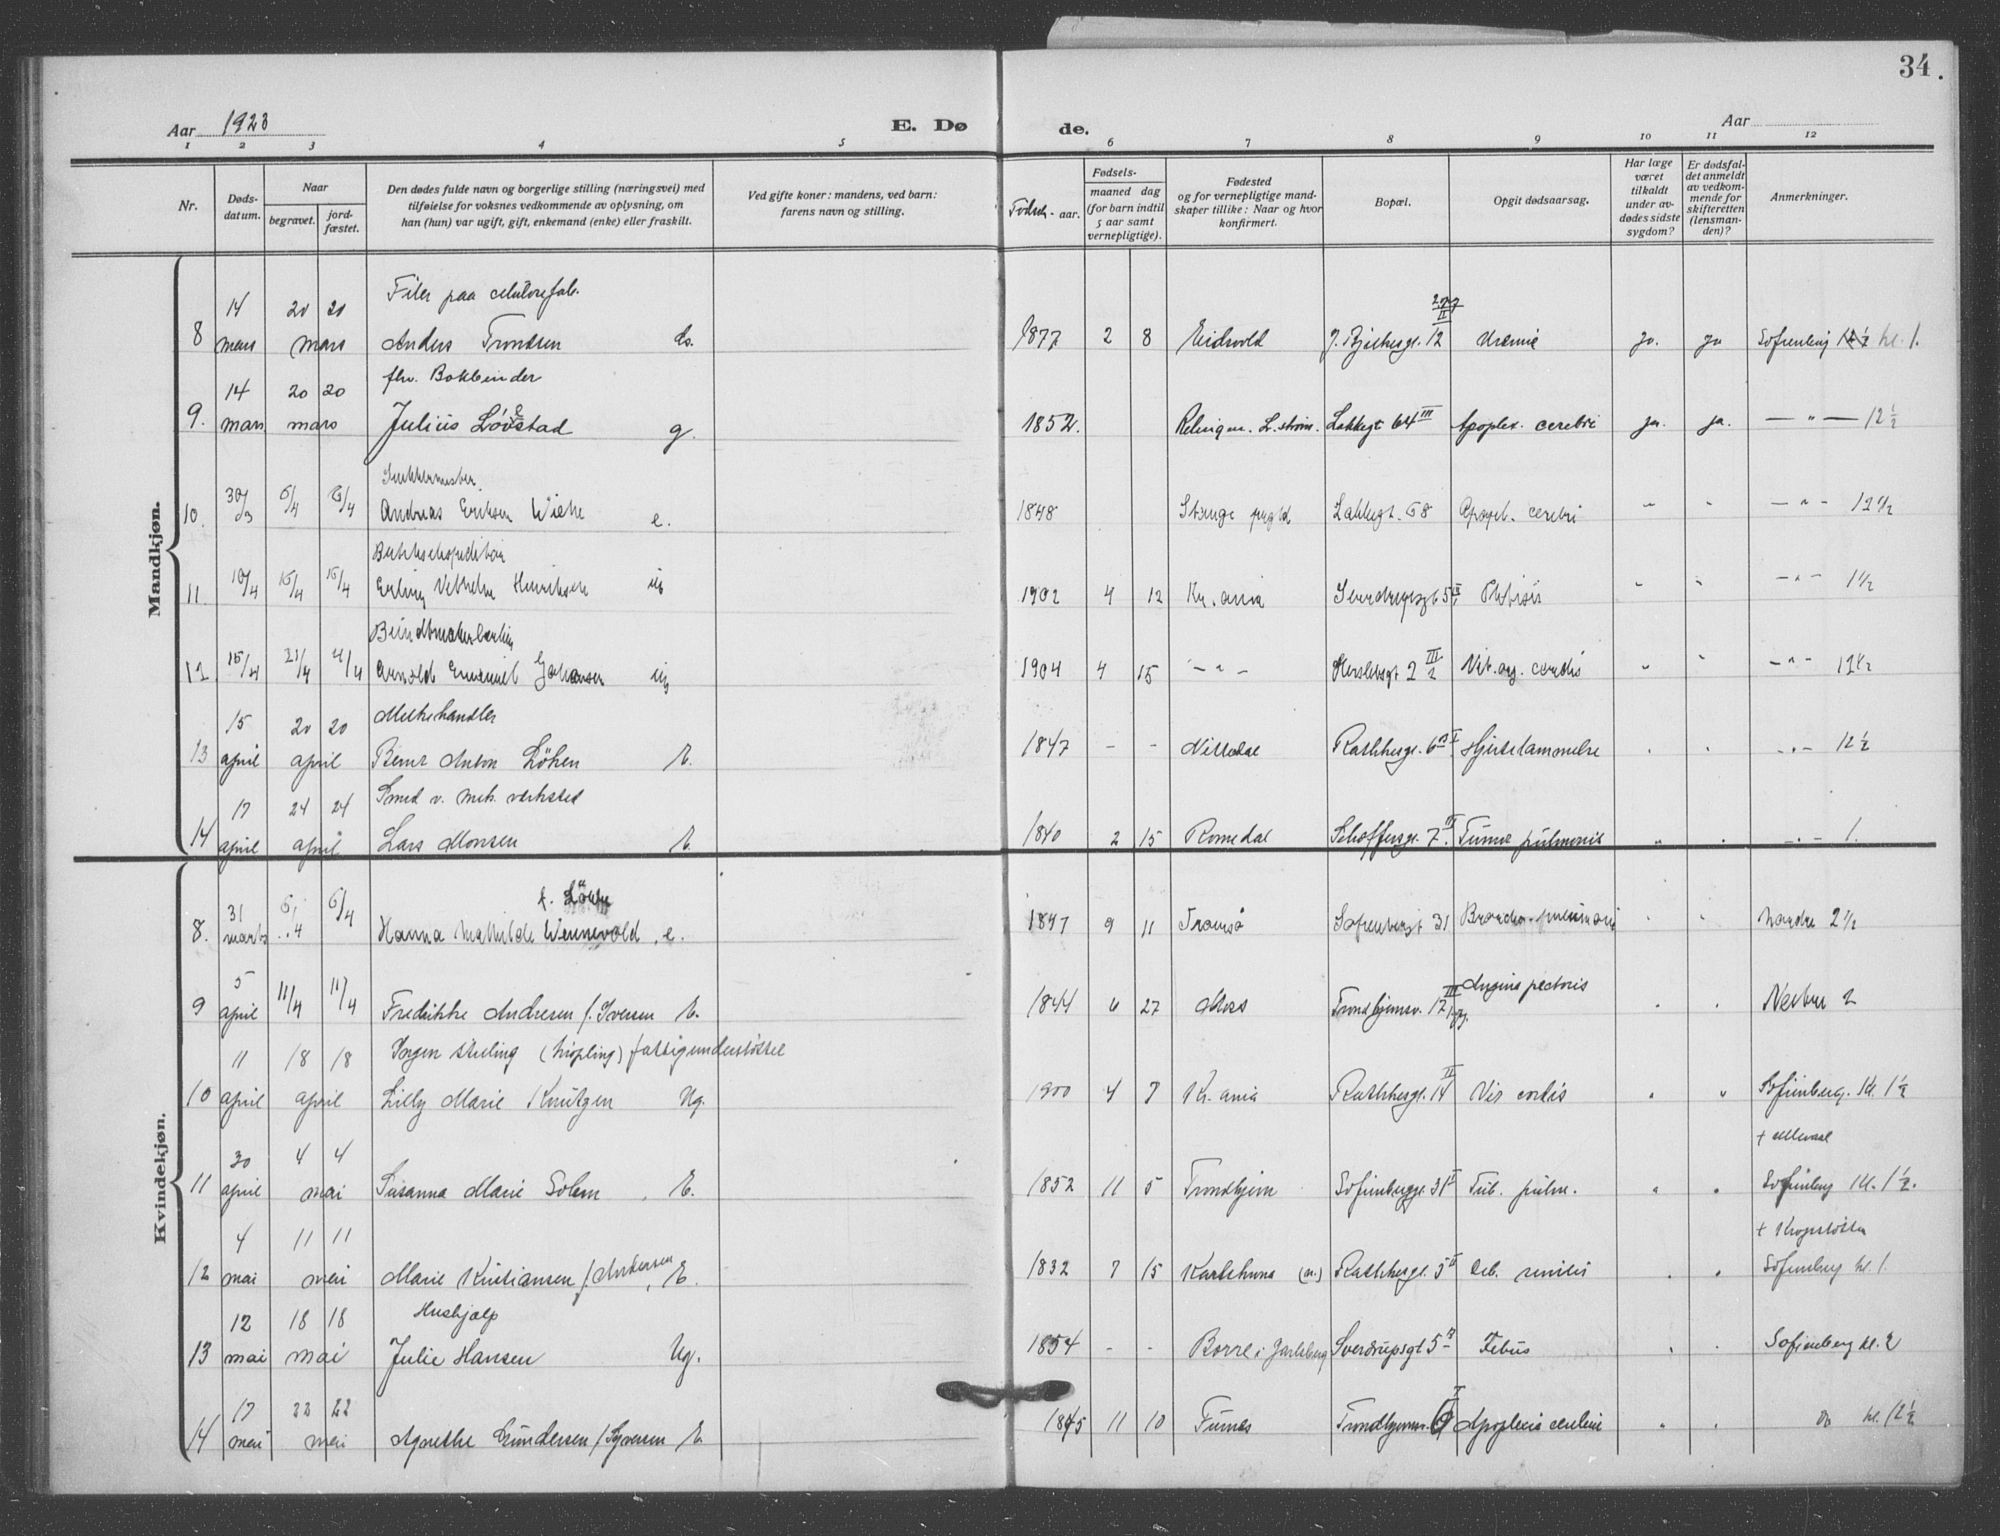 34.
Aar 1923 E. Dø de. Aar
1 2 3 4 5 6 7 8 9 10 11 12
Nr.
Døds-
datum.
Naar
begravet.
jord-
fæstet.
Den dødes fulde navn og borgerlige stilling (næringsvei) med
tilføielse for voksnes vedkommende av oplysning, om
han (hun) var ugift, gift, enkemand (enke) eller fraskilt.
Ved gifte koner: mandens, ved barn:
farens navn og stilling.
Fødsels- aar.
Fødsels-
maaned dag
(for barn indtil
5 aar samt
vernepligtige).
Fødested
og for vernepligtige mand-
skaper tillike: Naar og hvor
konfirmert.
Bopæl.
Opgit dødsaarsag.
Har læge
været
tilkaldt
under av-
dødes sidste
sygdom?
Er dødsfal-
det anmeldt
av vedkom-
mende for
skifteretten
(lensman-
den)?
Anmerkninger.
Mandkjøn.
14 20 20 Filer paa
8 mars mars Anders Trondsen 1877 2 8 Eidsvold 12 Uræmie ja. ja Sofienberg kl. 1.
14 20 20 fhv. Bokbinder
9. mars mars Julius Løvestad g. 1852. Relingen. L.strøm. Lakkegt 64 III Apoplex. cerebri ja. ja. — " — 12 ½
10. 30/3 6/4 6/4 Andreas Eriksen e. 1848 Stange Lakkegt. 68 Apopl. cerebri " " — " — 12 ½
11. 10/4 Erling Henriksen ug 1902 4 12 Kr.ania " " — " — 1 ½
12 15/4 21/4 Arnold Emanuel Johansen ug 1904 4 15 — " — Herslebsgt 2 III Vit. org. cordis " " — " — 12 ½
15 20 20 Melkehandler
13 april april Bernt Anton Løken E. 1847 - - Nittedal Rathkesgt. 6 Hjertelammelse " " — " — 12 ½
17 24 24 Smed v. mek. verksted
14 april april Lars Monsen E. 1840 2 15 Romedal Schoffersgt. 7 Tumor pulmonis " " — " — 1.
Kvindekjøn.
31 f. Løkke
8. marts 6/4 6/4 Hanna Mathilde Wennevold, e. 1847 9 11 Tromsø Sofienberggt 31 Broncho-pneumoni " " Nordre 2 ½
5 11/4 11/4
9 april Fredrikke Andresen f. Iversen E. 1844 6 27 Moss Trondhjemsv. 12 III Angina pectoris " " Vestre 2
11 18 18 Ingen stilling (krøpling) fattigunderstøttet
10 april april Lilly Marie Knutzen Ug. 1900 4 7 Kr.ania Rathkesgt. 14 II Vit cordis " " Sofienberg. Kl. 1 ½
+ Ullevaal
30 4 4
11 april mai Susanna Marie Solem, E. 1852 11 5 Trondhjem Sofienberggt. 31 I Tub. pulm. " " Sofienberg Kl. 1 ½.
+ Krogstøtten
4 11 11
12 mai mai Marie Kristiansen f. Andersen, E. 1832 7 15 Karlshuna Rathkesgt. 5 II Deb. senilis " " Sofienberg kl. 1.
12 18 18 Hushjælp
13 mai mai Julie Hansen Ug. 1854 - - Borre i Jarlsberg Sverdrupsgt 5 Sofienberg kl. 2
17 22 22
14 mai mai Agnethe Gundersen f. Syversen E. 1845 11 10 Furnes Trondhjemsv. 6 I Apoplexia cerebri " " Do kl. 12 ½